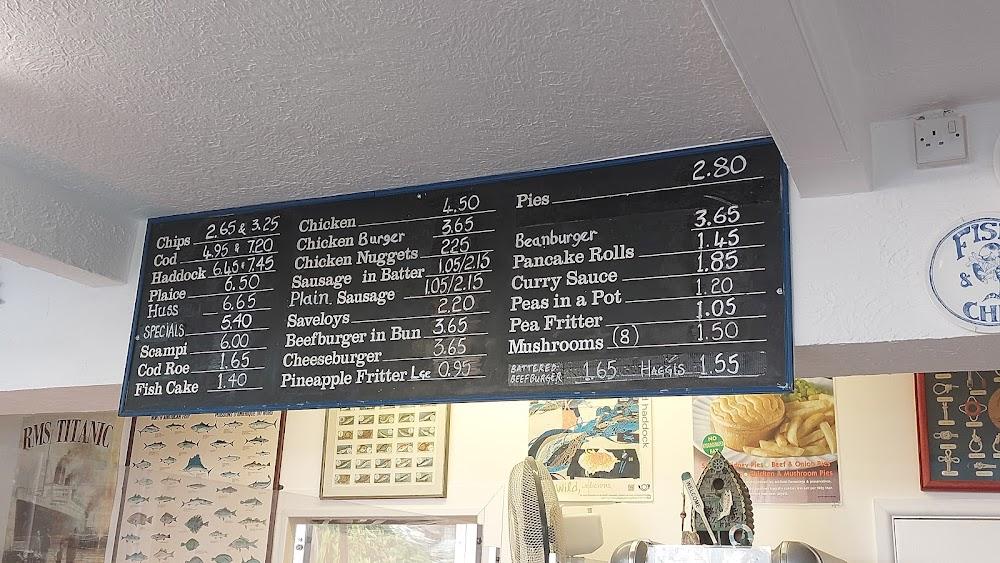 Chips 2.65 & 3.25
Cod 4.95 & 7.20
Haddock 6.45 & 7.45
Plaice 6.50
Huss 6.65
SPECIALS 5.40
Scampi 6.00
Cod Roe 1.65
Fish Cake 1.40
Chicken 4.50
Chicken Burger 3.65
Chicken Nuggets 2.25
Sausage in Batter 1.05/2.15
Plain Sausage 1.05/2.15
Saveloys 2.20
Beefburger in Bun 3.65
Cheeseburger 3.65
Pineapple Fritter Lge 0.95
Pies 2.80
Beanburger 3.65
Pancake Rolls 1.45
Curry Sauce 1.85
Peas in a Pot 1.20
Pea Fritter 1.05
Mushrooms (8) 1.50
BATTERED BEEFBURGER 1.65 HAGGIS 1.55
FIS
&
CH
RMS TITANIC
haddock
wild
NO
Pies Beef & Onion Pies
Chicken & Mushroom Pies